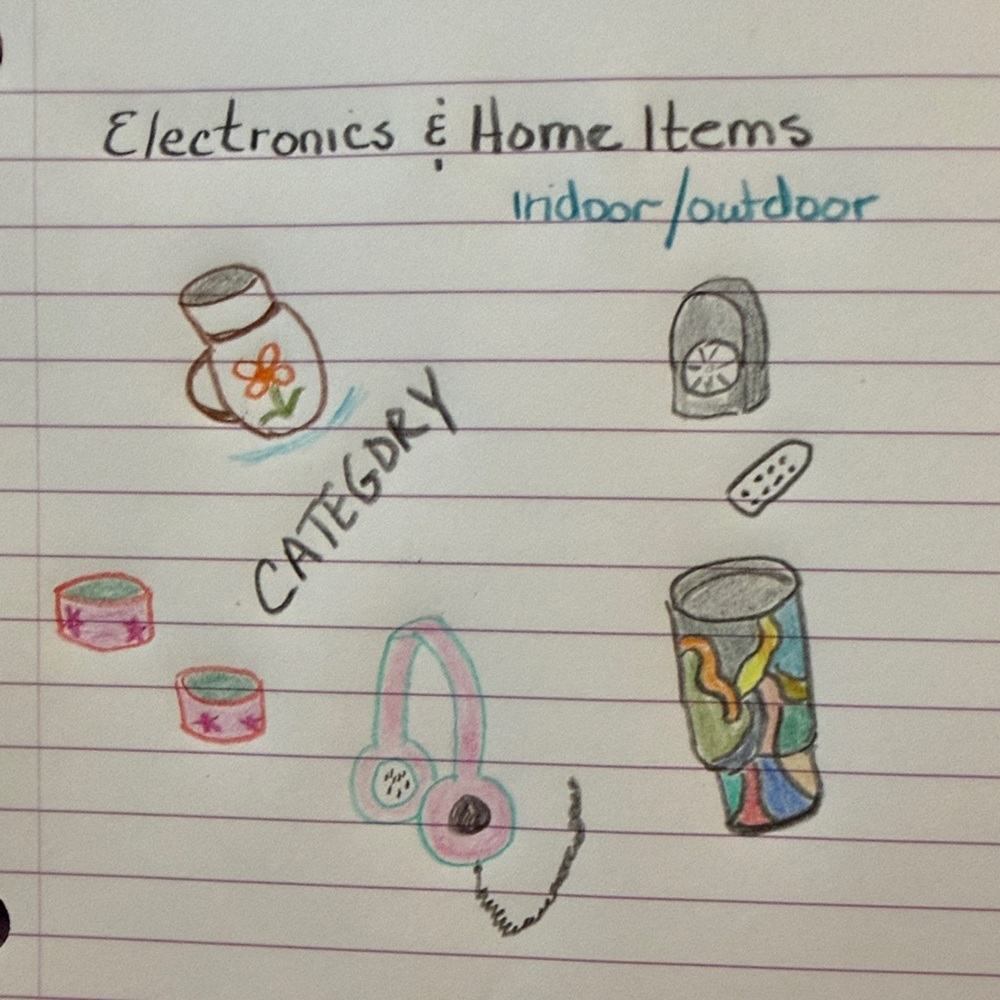 Electronics & Home Items
Indoor/outdoor
CATEGORY